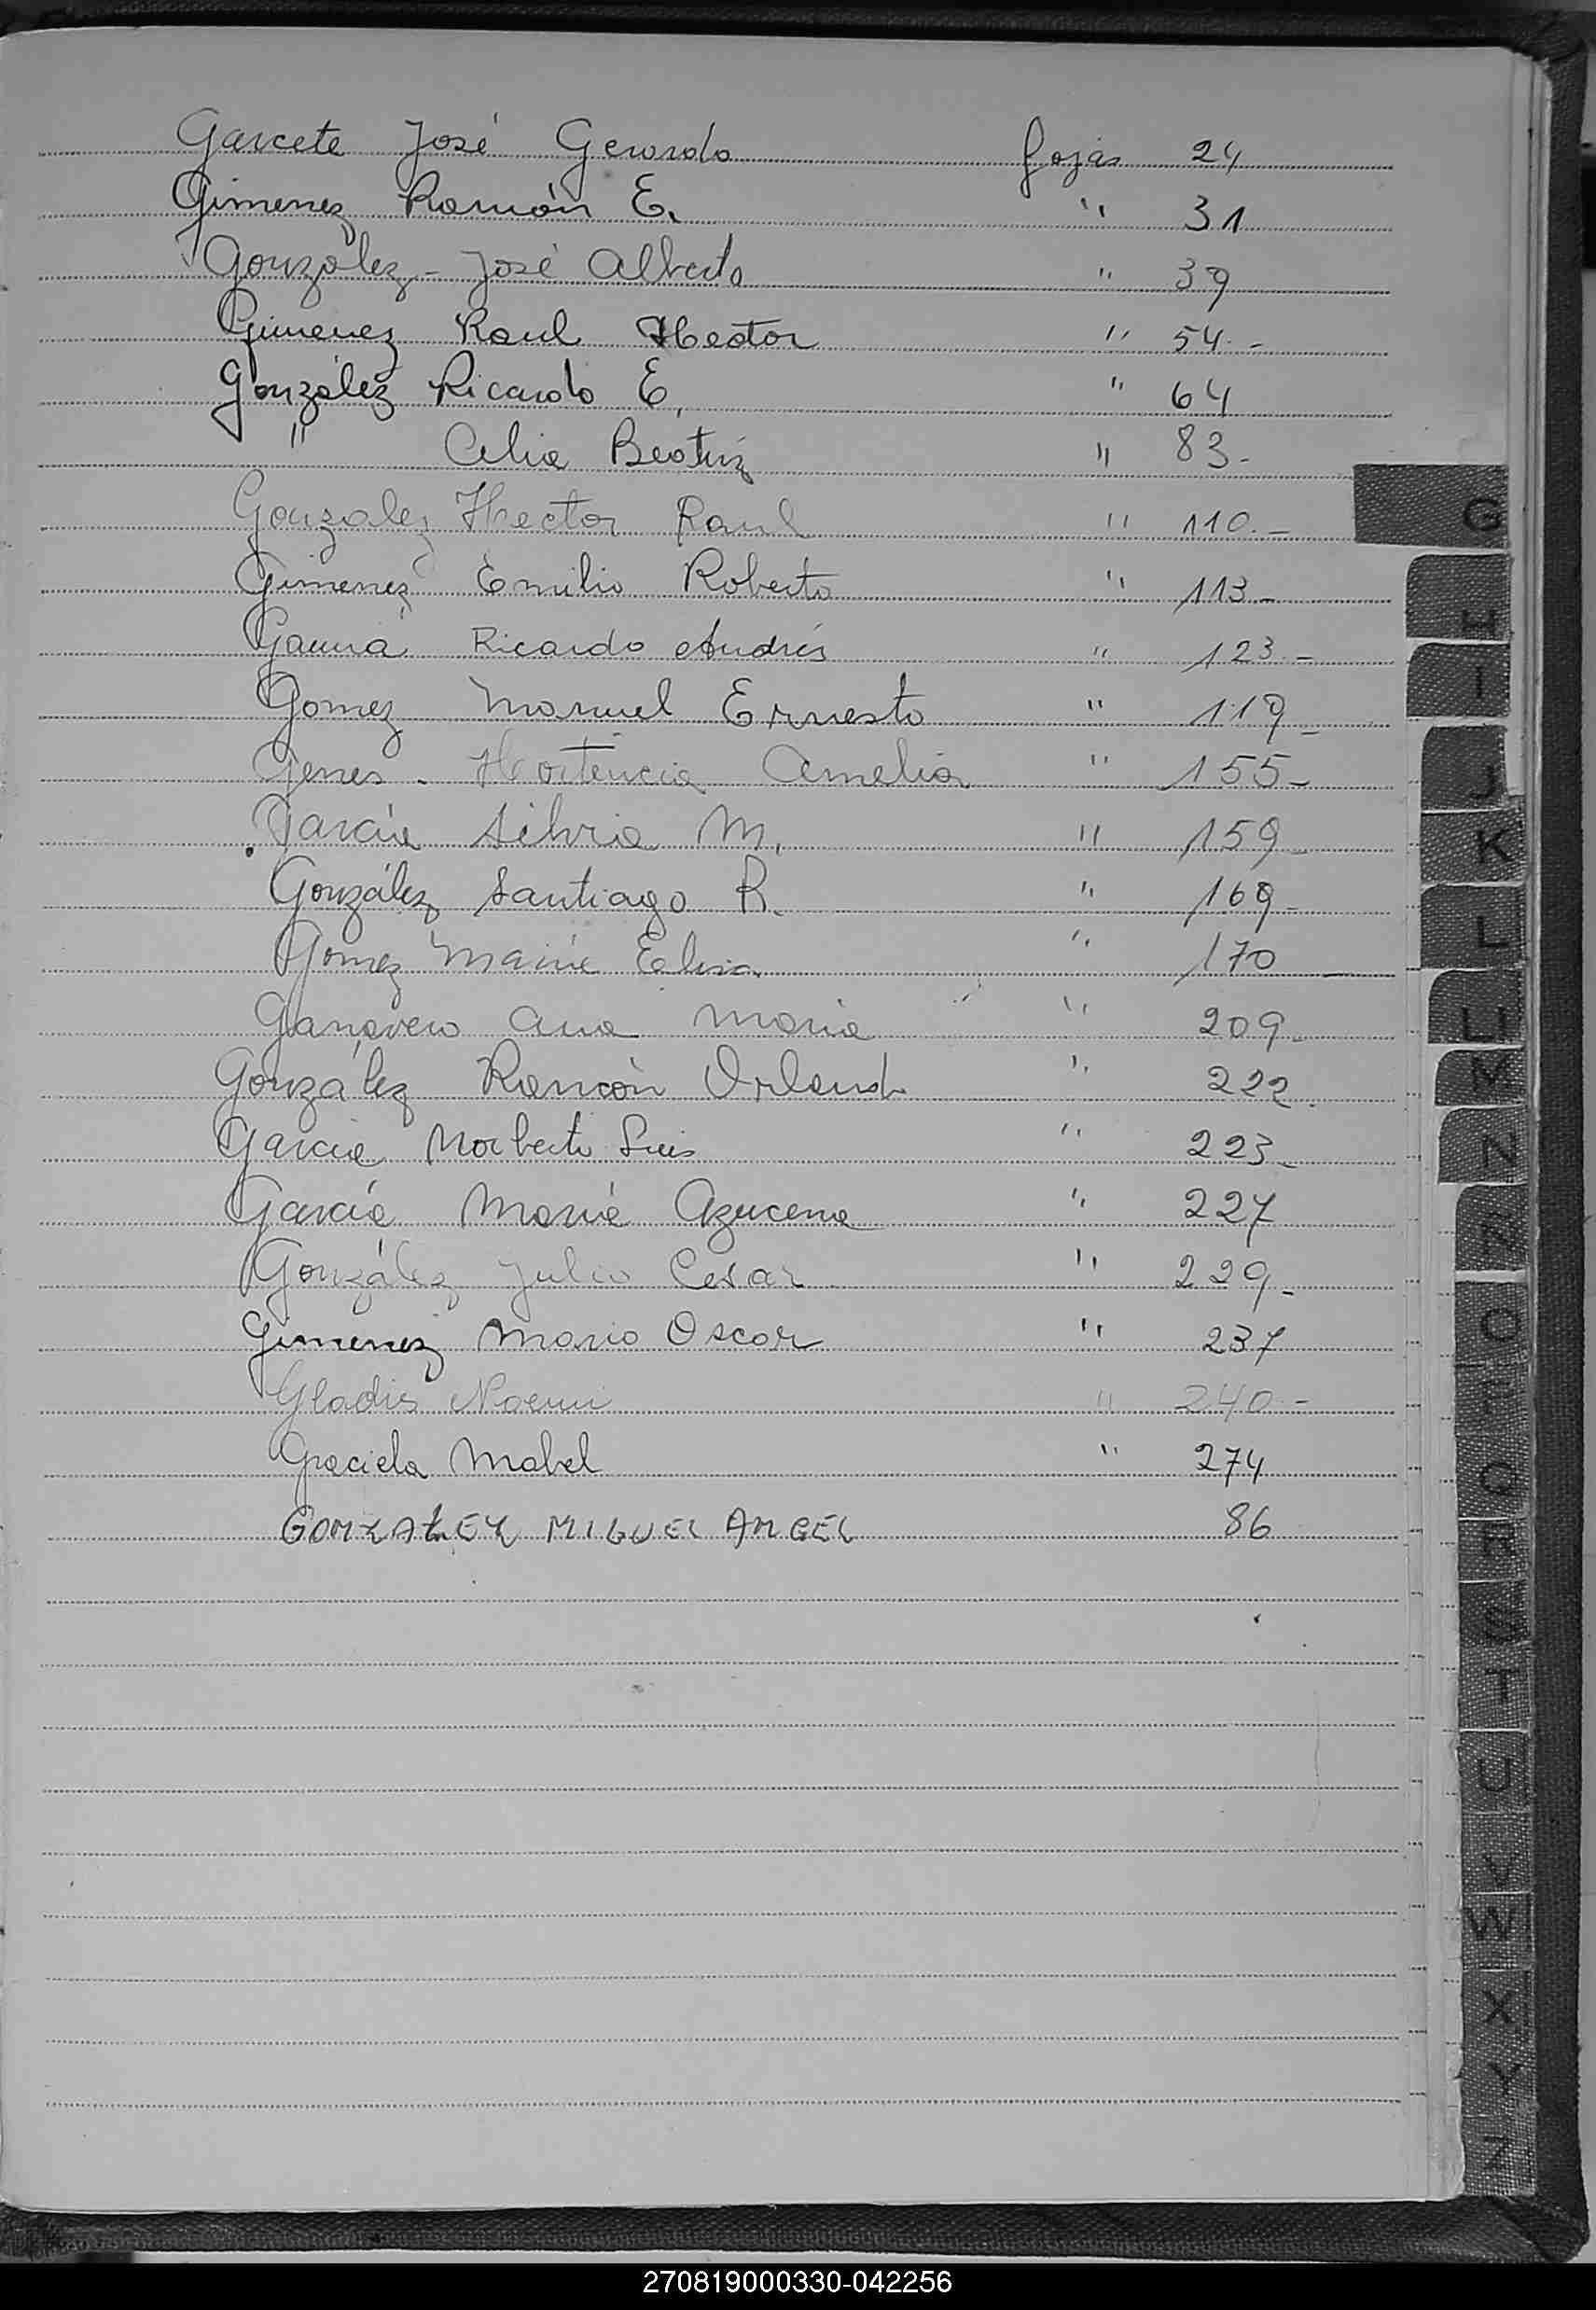 Garcete José Gerardo fojas 24
Gimenez Ramón E. " 31
González - José Alberto " 39
Gimenez Raul Hector " 54.-
González Ricardo E. " 64
" Celia Beatriz " 83-
Gonzalez Hector Raul " 110.-
Gimenez Emilio Roberto " 113-
Gauna Ricardo Andrés " 123-
Gomez Manuel Ernesto " 119-
Genes - Hortencia Amelia " 155-
García Silvia M. " 159-
González Santiago R. " 169-
Gomez María Elisa " 170
Ana Maria " 209-
González Ramón Orlando " 222.
Garcia Norberto Luis " 223-
García María Azucena " 227
González Julio Cesar " 229-
Gimenez Mario Oscar " 237
Gladis Noemi " 240-
Graciela Mabel " 274
GONZALEZ MIGUEL ANGEL 86
G
H
I
J
K
L
Ll
M
N
Ñ
O
P
Q
R
S
T
U
V
W
X
Y
Z
270819000330-042256